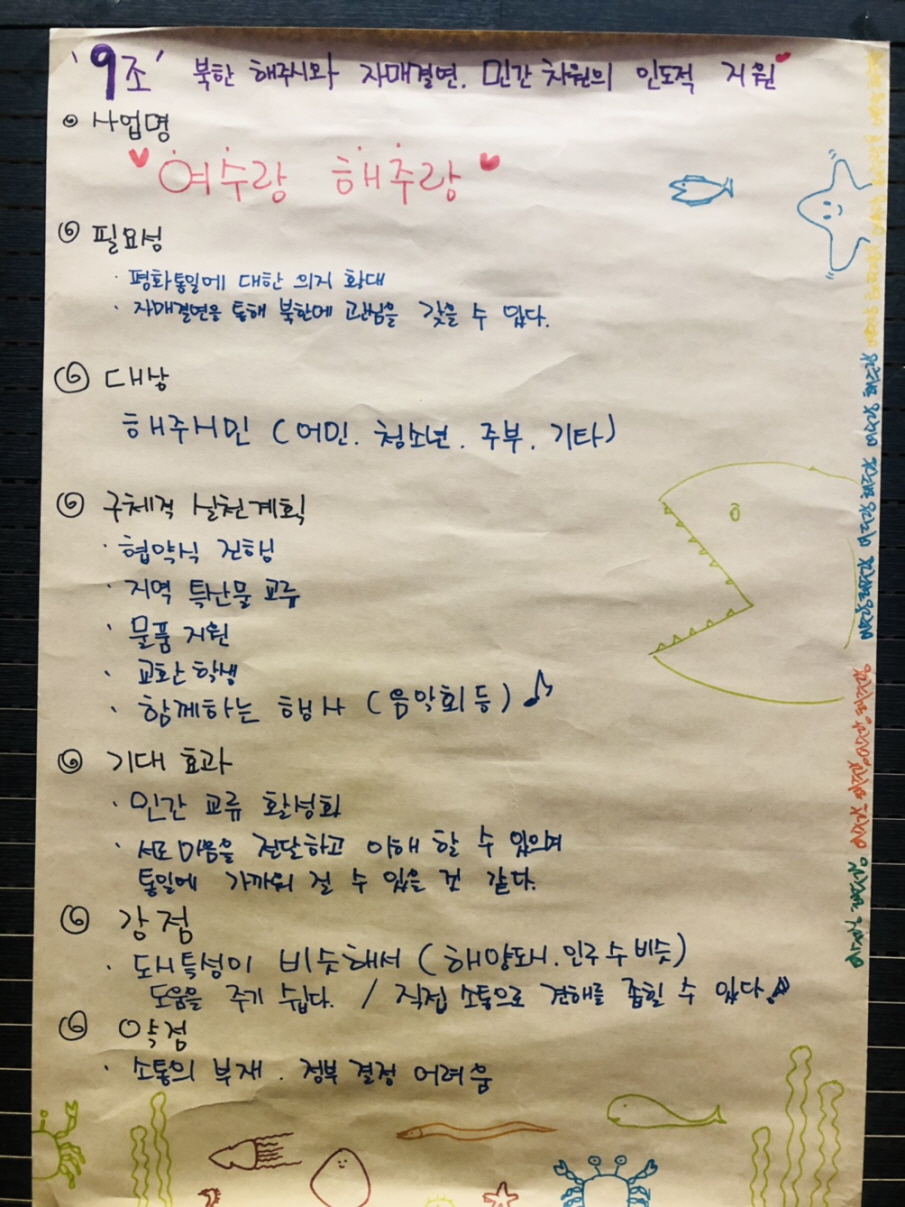 '9조' 북한 해주시와 자매결연. 민간 차원의 인도적 지원
사업명
여수랑 해주랑
필요성
· 평화통일에 대한 의지 확대
· 자매결연을 통해 북한에 관심을 갖을 수 있다.
대상
해주시민 (어민. 청소년. 주부. 기타)
구체적 실천계획
· 협약식 진행
· 지역 특산물 교류
· 물품 지원
· 교환학생
· 함께하는 행사 (음악회 등)
기대 효과
· 민간 교류 활성화
· 서로 마음을 전달하고 이해 할 수 있으며
통일에 가까워 질 수 있을 것 같다.
강점
· 도시특성이 비슷해서 (해양도시. 인구 수 비슷)
도움을 주기 쉽다. / 직접 소통으로 견해를 좁힐 수 있다.
약점
· 소통의 부재. 정부 결정 어려움